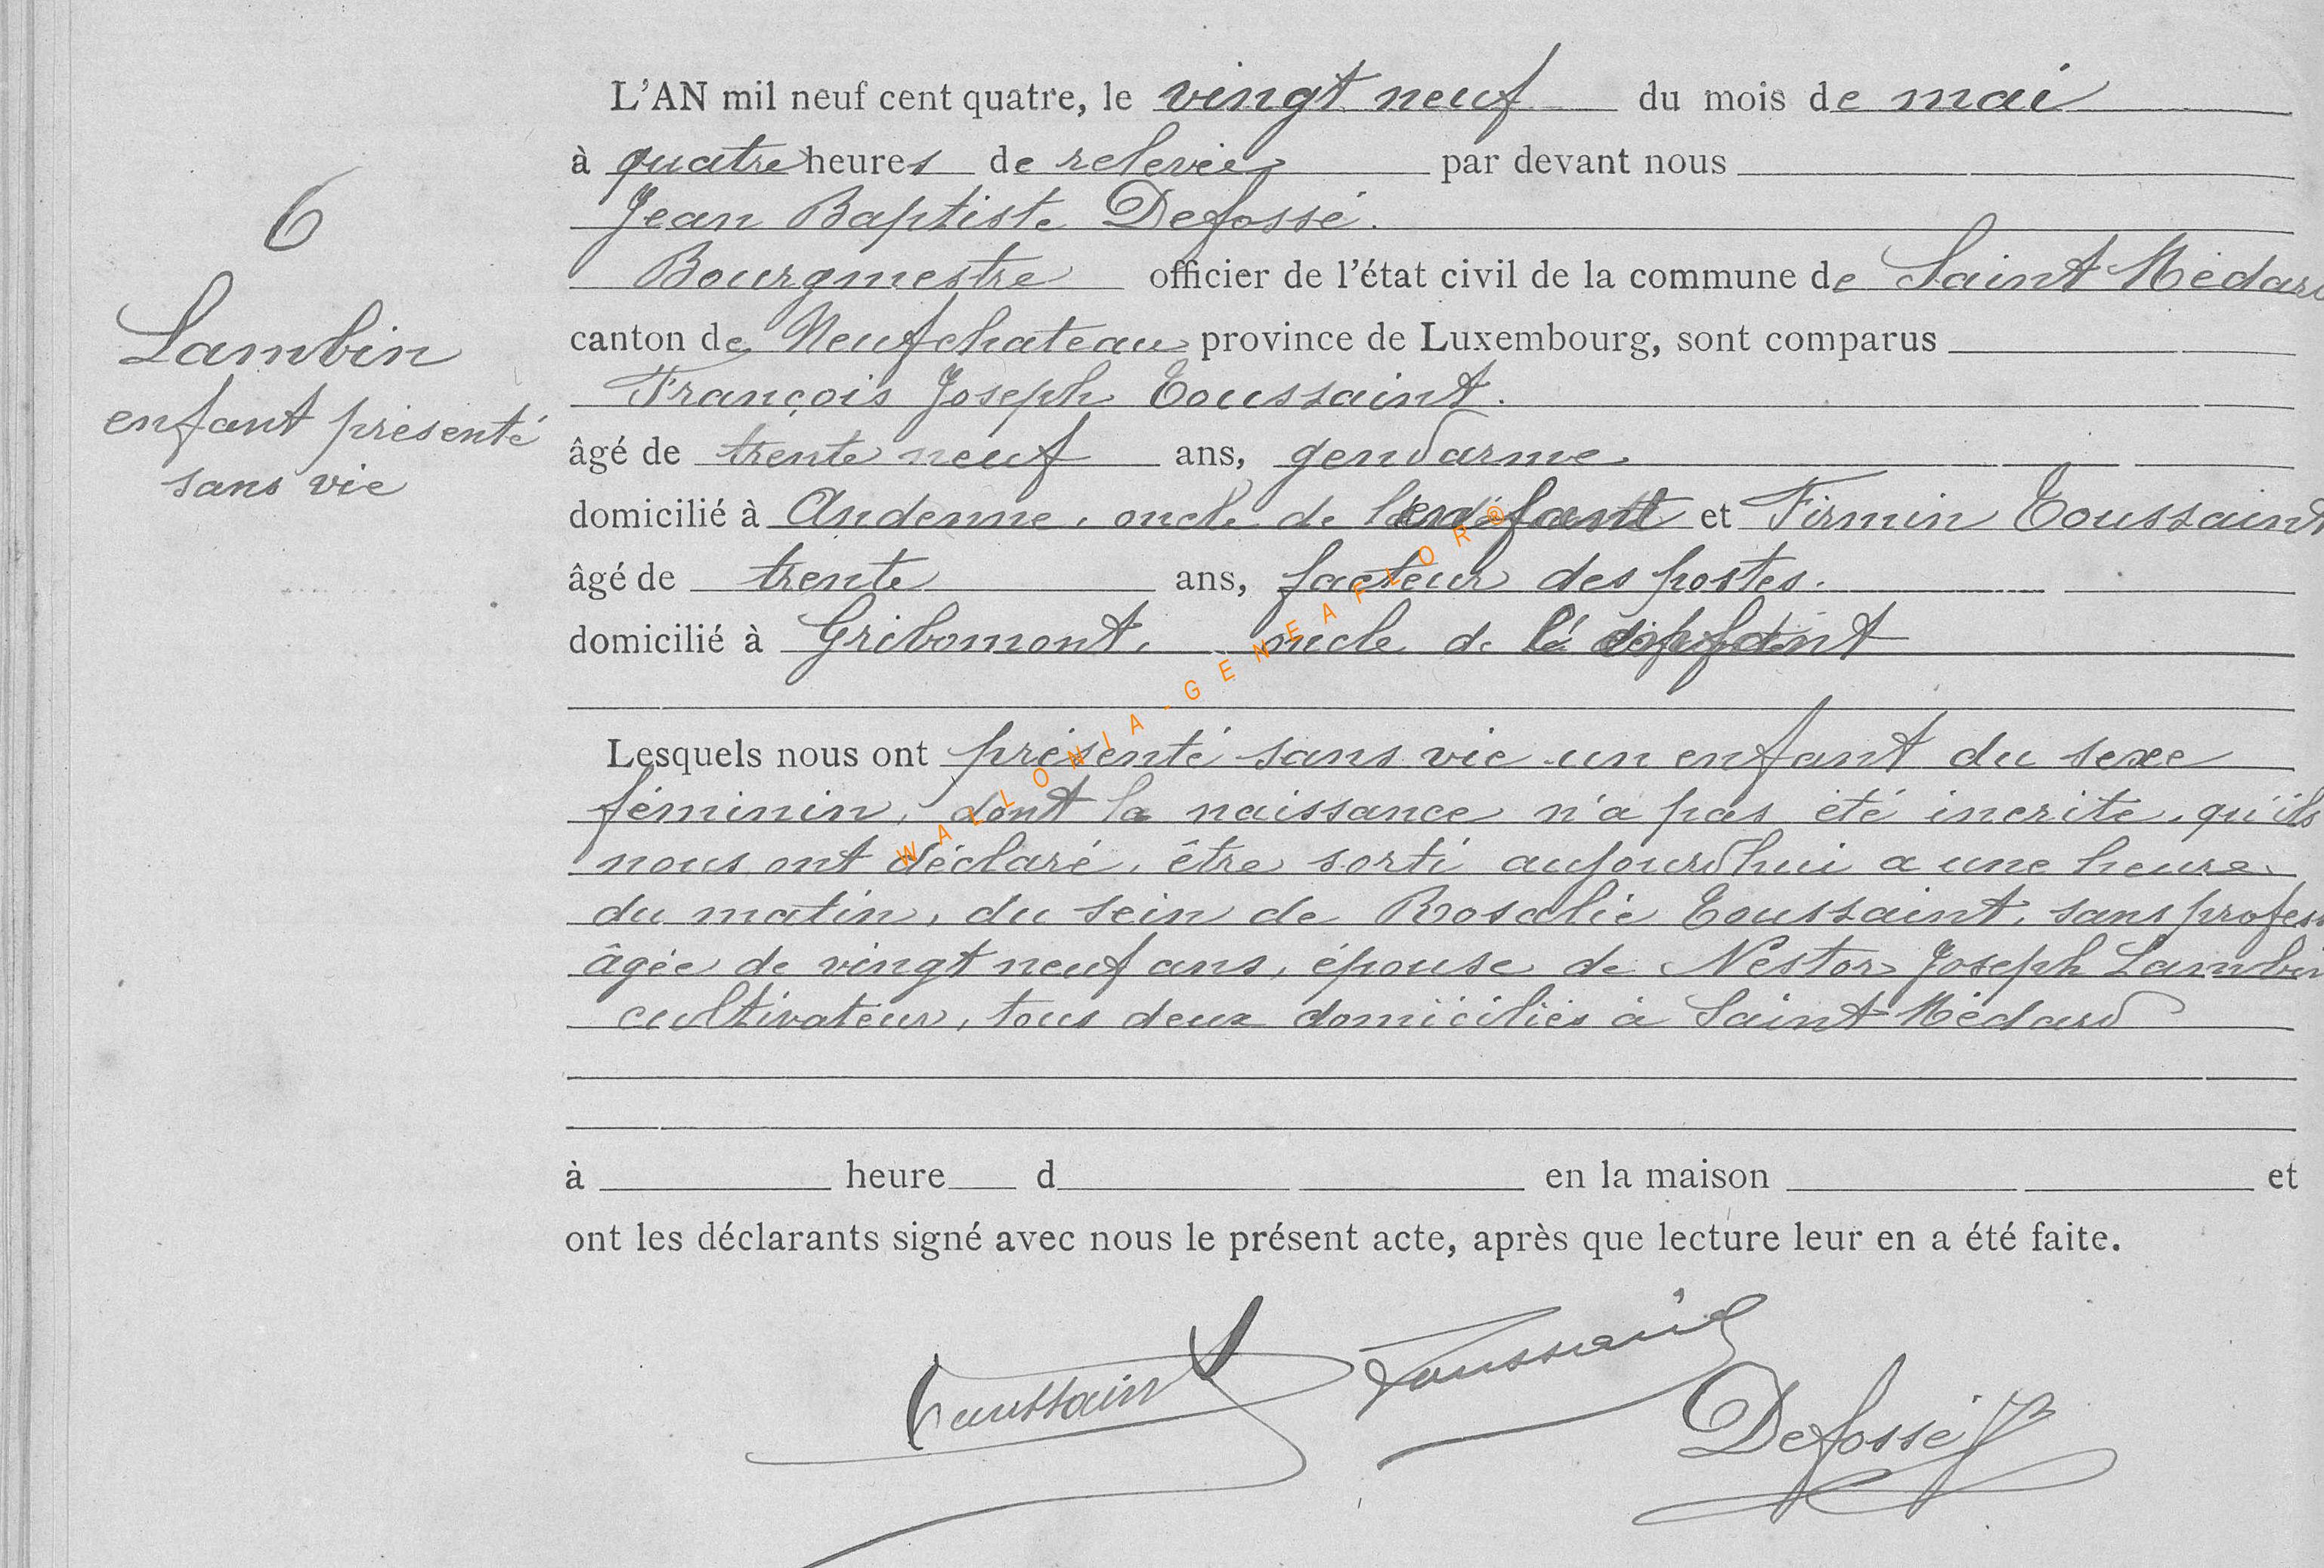 6
Lambin
enfant présenté
sans vie
L'AN mil neuf cent quatre, le vingt neuf du mois de mai
à quatre heures de relevée par devant nous
Jean Baptiste Defossé.
Bourgmestre officier de l'état civil de la commune de Saint Médard
canton de Neufchateau province de Luxembourg, sont comparus
François Joseph Toussaint.
âgé de trente neuf ans, gendarme
domicilié à Andenne, oncle de l'enfant et Firmin Toussaint
âgé de trente ans, facteur des postes.
domicilié à Gribomont, oncle de l'enfant
Lesquels nous ont présenté sans vie un enfant du sexe
féminin, dont la naissance n'a pas été incrite, qu'ils
nous ont déclaré, être sorti aujourd'hui a une heure
du matin, du sein de Rosalie Toussaint, sans profess
âgée de vingt neuf ans, épouse de Nestor Joseph Lambin
cultivateur, tous deux domiciliés à Saint Médard
à heure d en la maison et
ont les déclarants signé avec nous le présent acte, après que lecture leur en a été faite.
Toussaint Toussaint
Defossé JB
WALLONIA-GENEAFLOR®